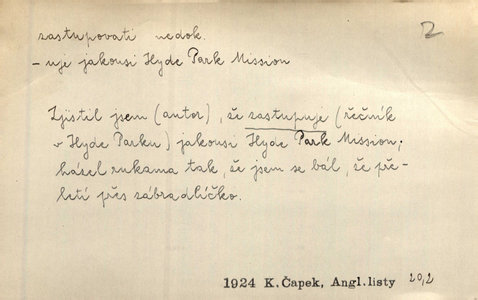 zastupovati nedok. Z
- uje jakousi Hyde Park Mission
Zjistil jsem (autor), že zastupuje (řečník
v Hyde Parku) jakousi Hyde Park Mission;
házel rukama tak, že jsem se bál, že pře-
letí přes zábradlíčko.
1924 K.Čapek, Angl.listy 20,2